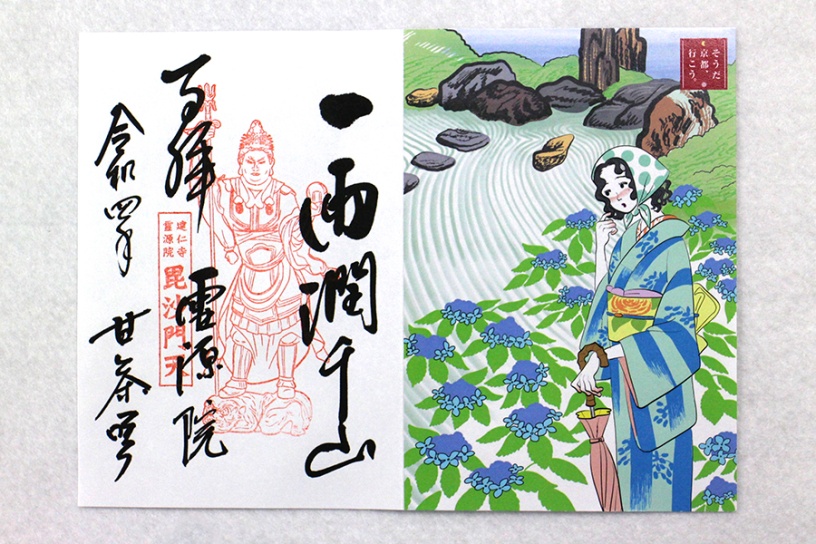 そうだ
京都、
行こう。
一雨潤千山
霊源院
建仁寺
霊源院
毘沙門天
令和四年
甘茶